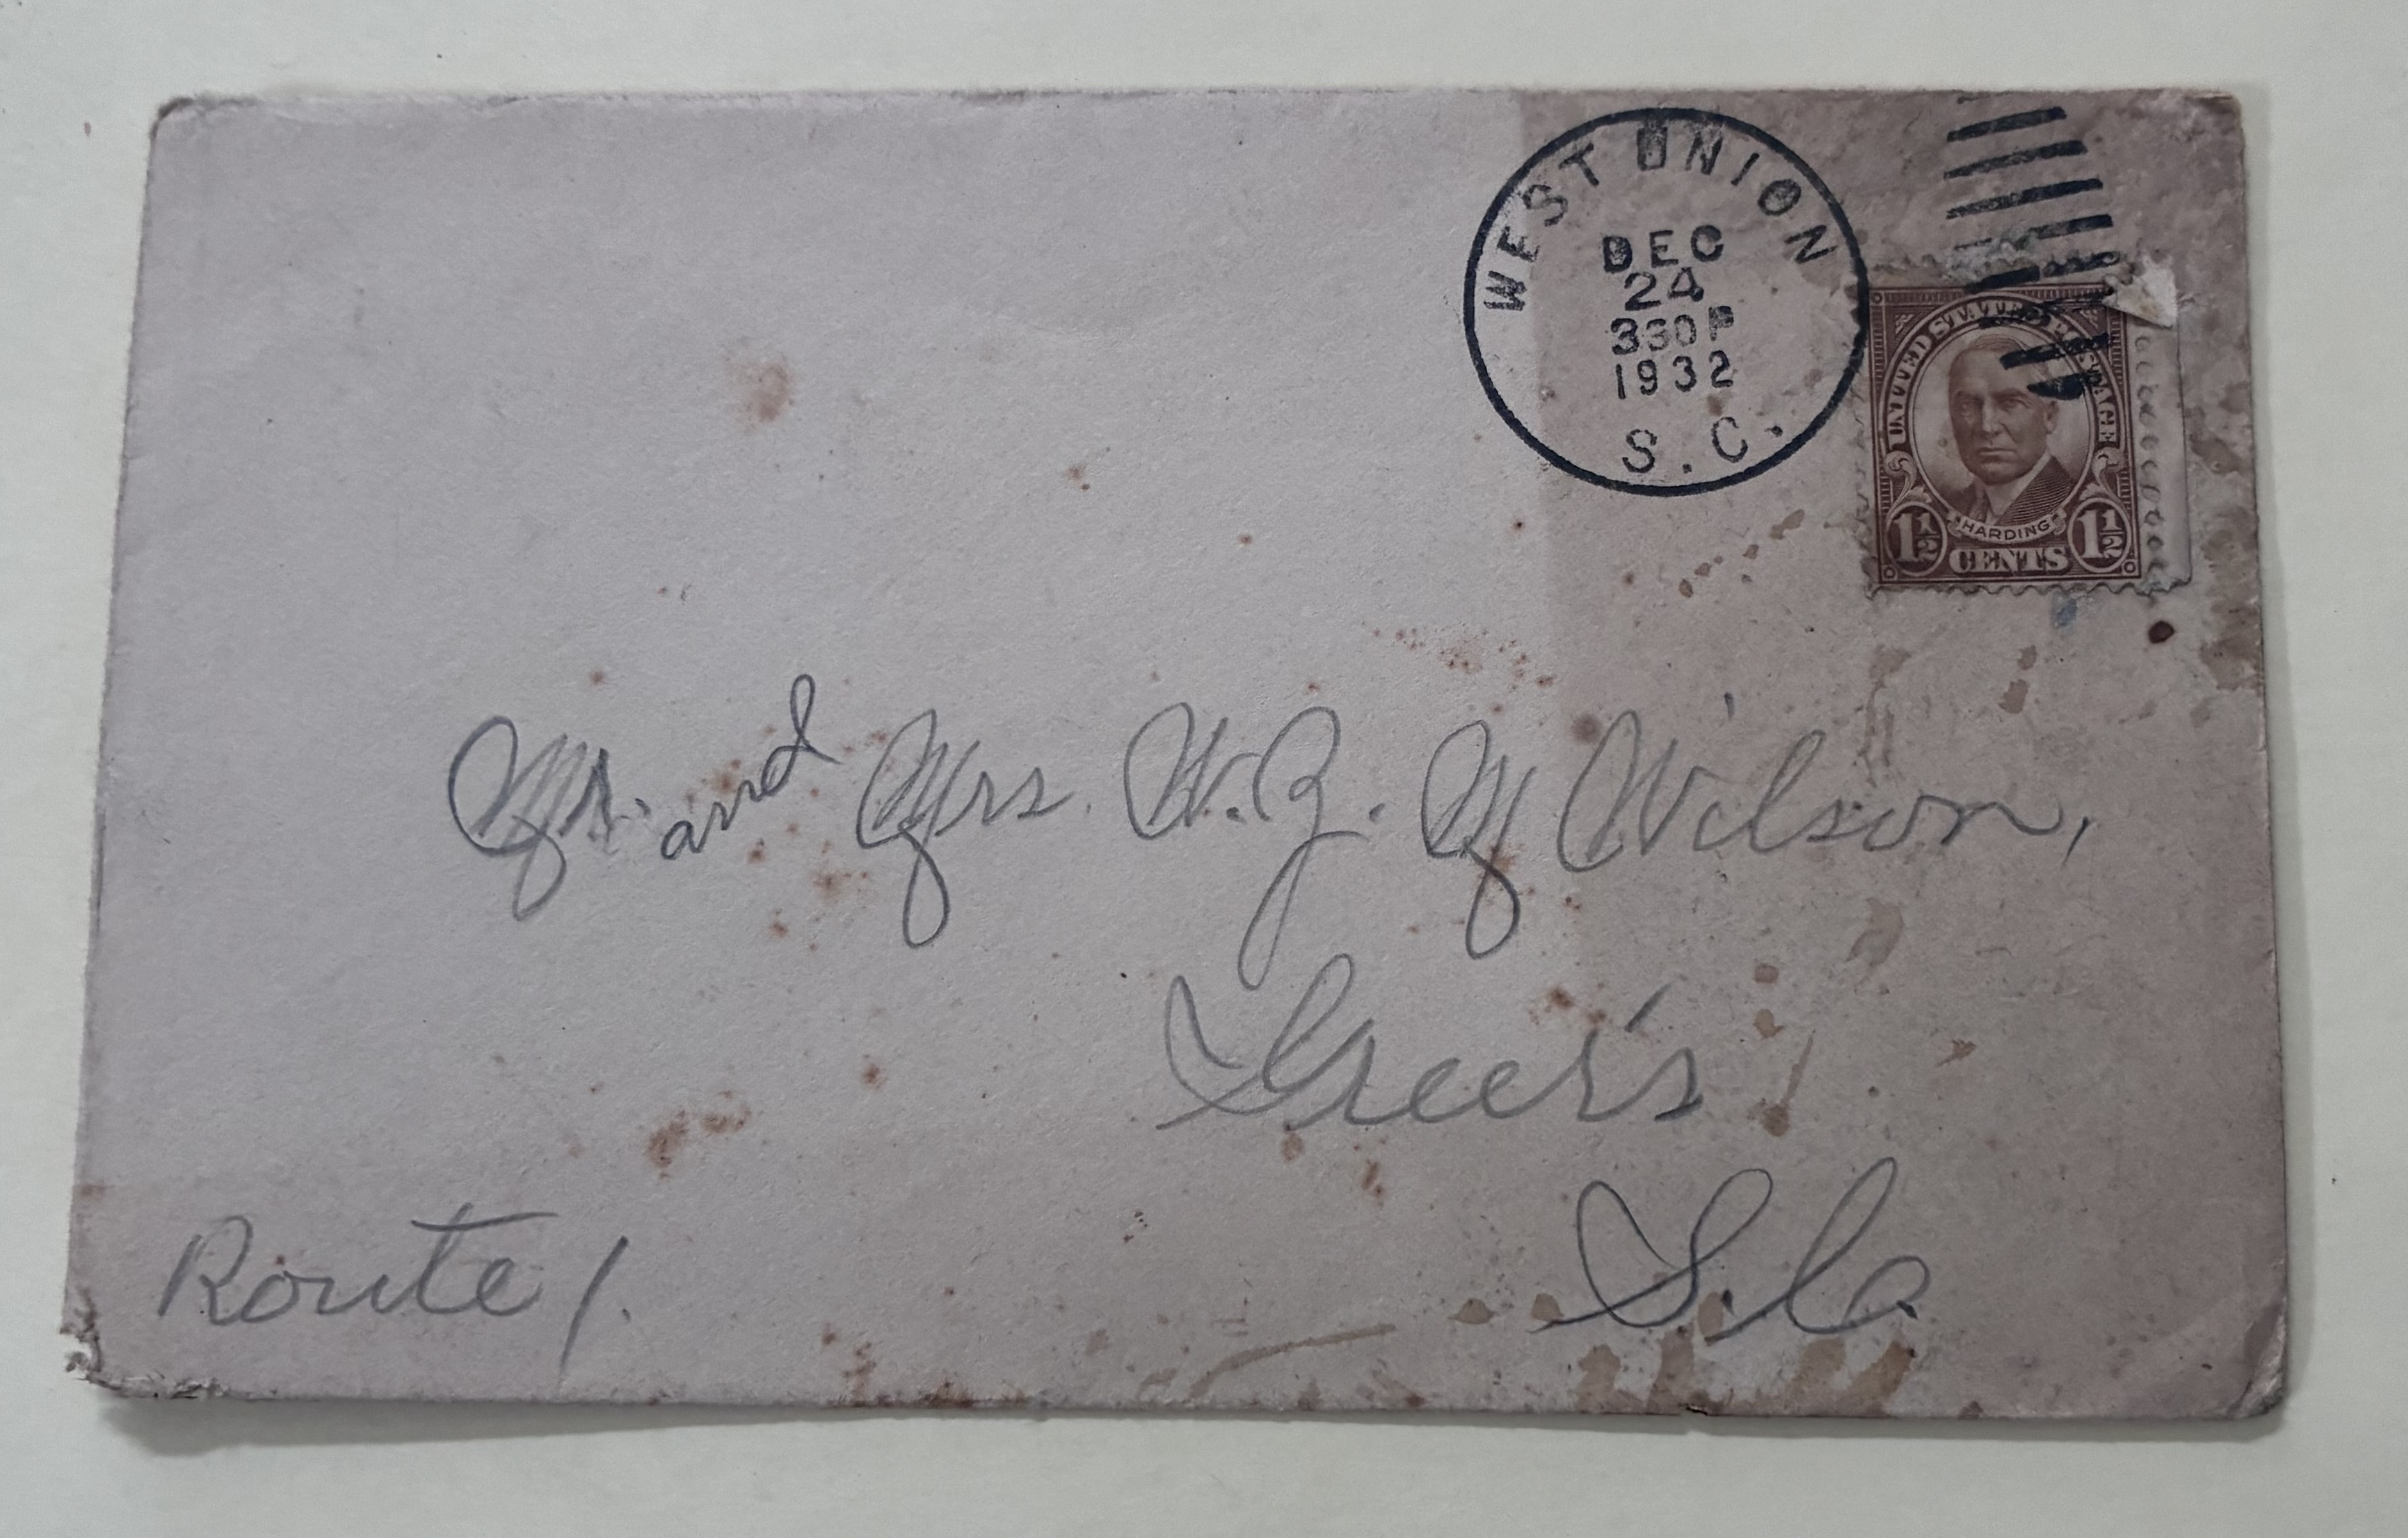 WEST UNION
DEC
24
330P
1932
S.C.
UNITED STATES POSTAGE
HARDING
1½ CENTS 1½
Mr. and Mrs. W.Z. M Wilson,
Greer's
S.C.
Route 1.